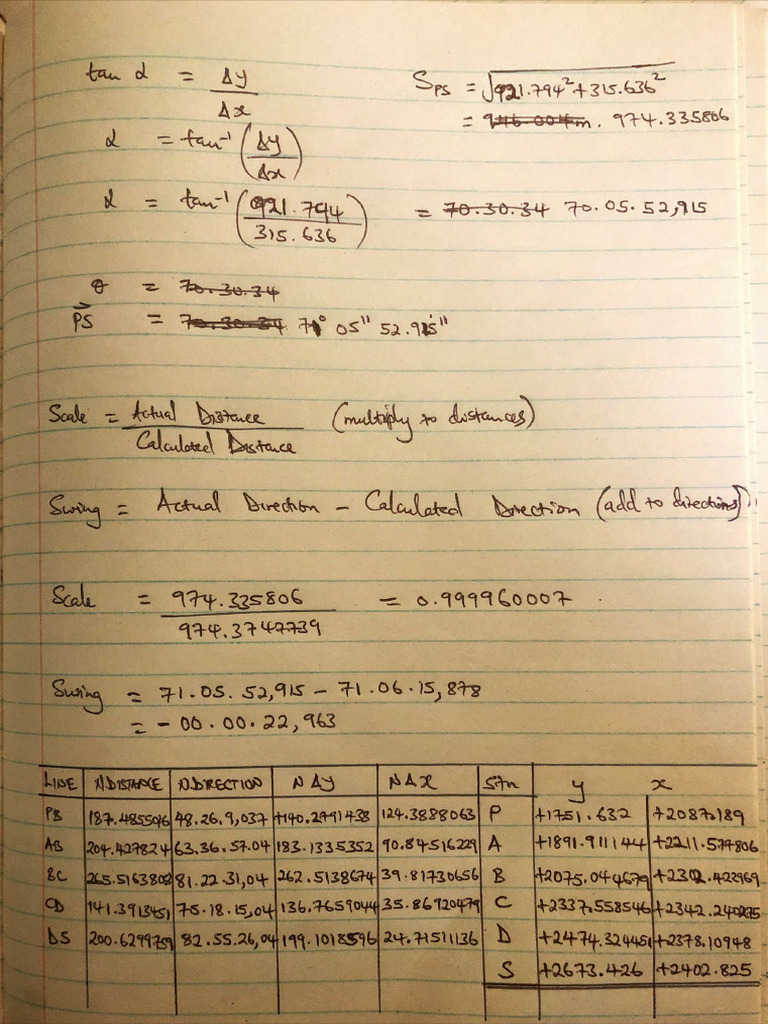 tan α = Δy / Δx
S_PS = √921.794² + 315.636²
= 946.004m. 974.335806
α = tan⁻¹ (Δy / Δx)
α = tan⁻¹ (921.794 / 315.636) = 70.30.34 70.05.52,915
θ = 70.30.34
PS = 70.30.34 71° 05'' 52.915''
Scale = Actual Distance / Calculated Distance (multiply to distances)
Swing = Actual Direction - Calculated Direction (add to directions)
Scale = 974.335806 / 974.3747739 = 0.999960007
Swing = 71.05.52,915 - 71.06.15,878
= - 00.00.22,963
LINE N.DISTANCE N.DIRECTION N Δy N Δx Stn y x
PB 187.4855016 48.26.9,037 +140.2791438 124.3888063 P +1751.632 +2087.189
AB 204.427824 63.36.57.04 183.1335352 90.84516229 A +1891.911144 +2211.577806
BC 265.5163808 81.22.31,04 262.5138674 39.81730656 B +2075.044679 +2302.422969
CD 141.3913451 75.18.15,04 136.7659044 35.86920479 C +2337.558546 +2342.240275
DS 200.6299759 82.55.26,04 199.1018596 24.71511136 D +2474.324451 +2378.10948
S +2673.426 +2402.825